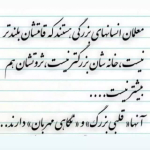 معلمان انسانهای بزرگی هستند که قامتشان بلندتر
نیست، خانه شان بزرگتر نیست، ثروتشان هم
بیشتر نیست....
آنها «قلبی بزرگ» و «نگاهی مهربان» دارند...